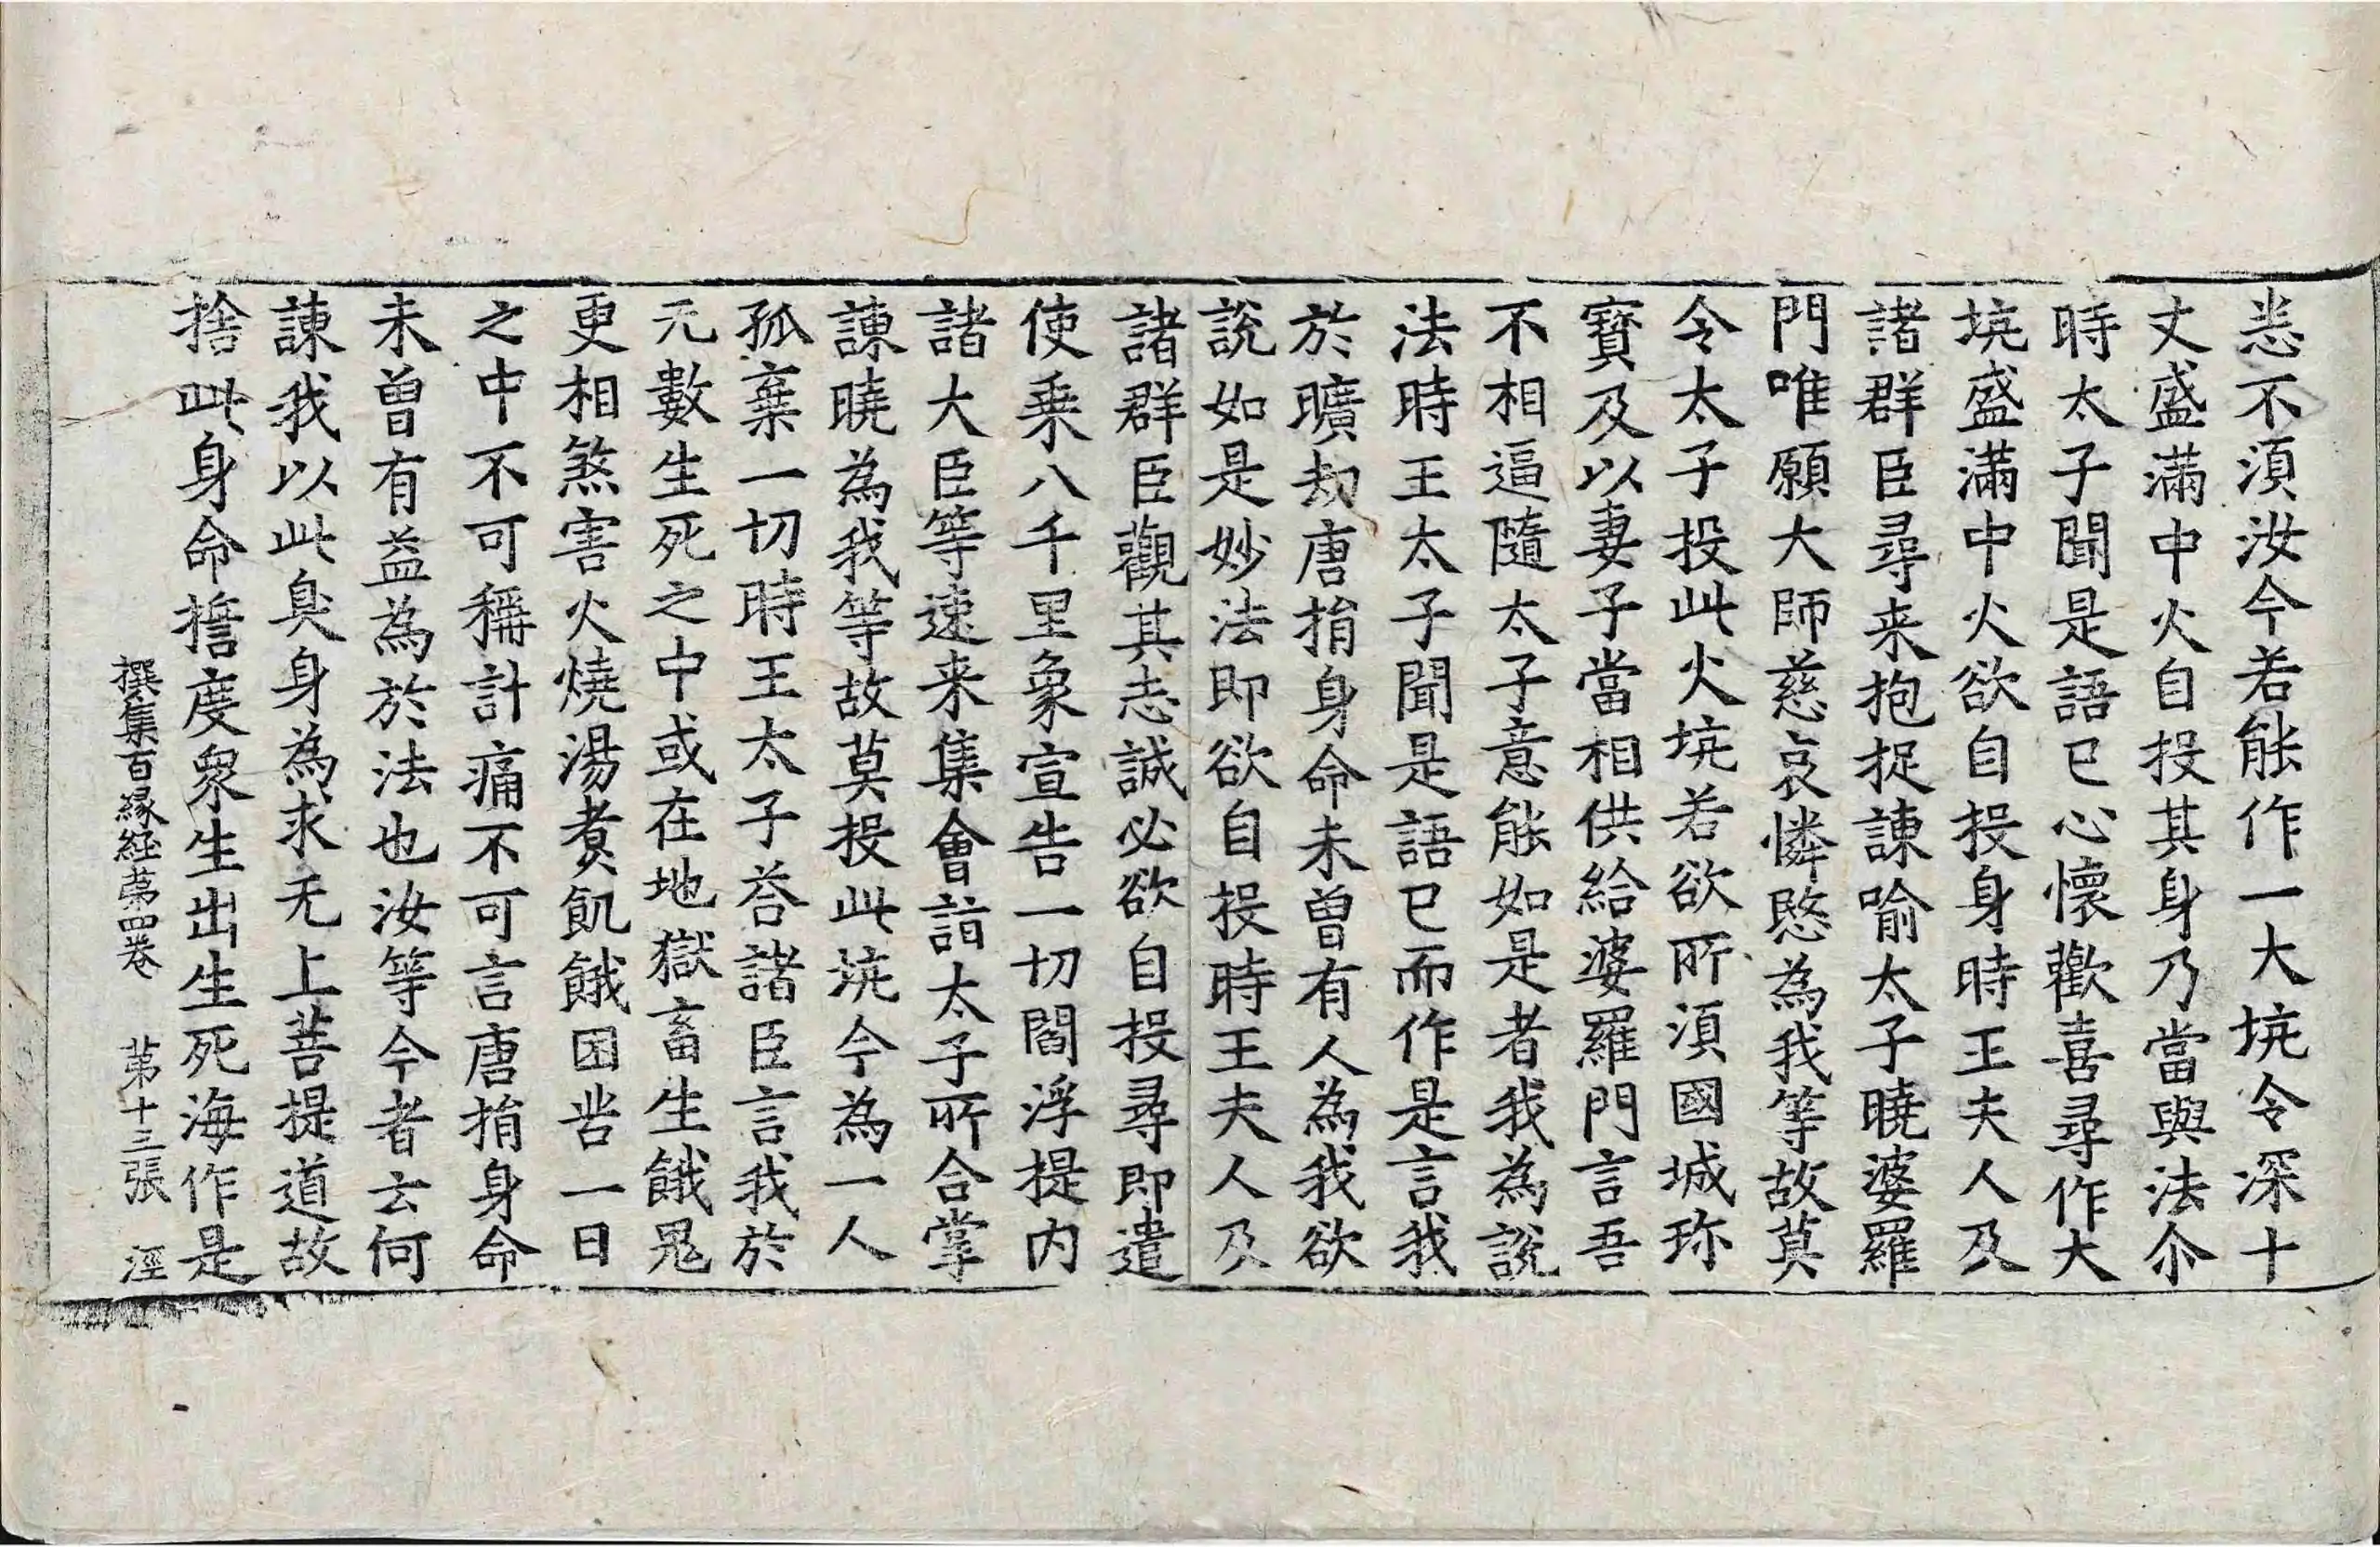 悉不須汝今若能作一大坑令深十
丈盛滿中火自投其身乃當與法尒
時太子聞是語已心懷歡喜尋作大
坑盛滿中火欲自投身時王夫人及
諸群臣尋来抱捉諫喻太子曉婆羅
門唯願大師慈哀憐愍為我等故莫
令太子投此火坑若欲所須國城珎
寶及以妻子當相供給婆羅門言吾
不相逼隨太子意能如是者我為說
法時王太子聞是語已而作是言我
於曠劫唐捐身命未曾有人為我欲
說如是妙法即欲自投時王夫人及
諸群臣觀其志誠必欲自投尋即遣
使乘八千里象宣告一切閻浮提内
諸大臣等速来集會詣太子所合掌
諫曉為我等故莫投此坑今為一人
孤棄一切時王太子荅諸臣言我於
无數生死之中或在地獄畜生餓鬼
更相煞害火燒湯煑飢餓困苦一日
之中不可稱計痛不可言唐捐身命
未曾有益為於法也汝等今者云何
諫我以此臭身為求无上菩提道故
捨此身命擔度衆生出生死海作是
撰集百緣經第四卷　第十三張　涇